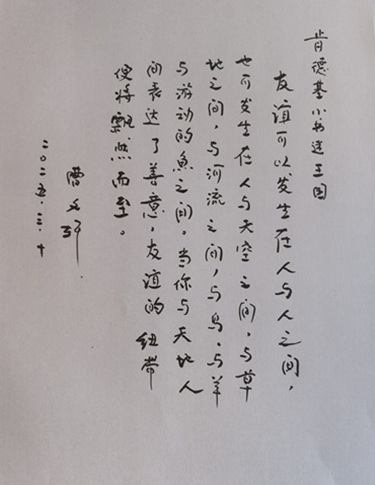 肯德基小书迷王国
友谊可以发生在人与人之间，
也可发生在人与天空之间，与草
地之间，与河流之间，与鸟、与羊
与游动的鱼之间。当你与天地人
间表达了善意，友谊的纽带
便将飘然而至。
曹文轩
二〇二五.三.十